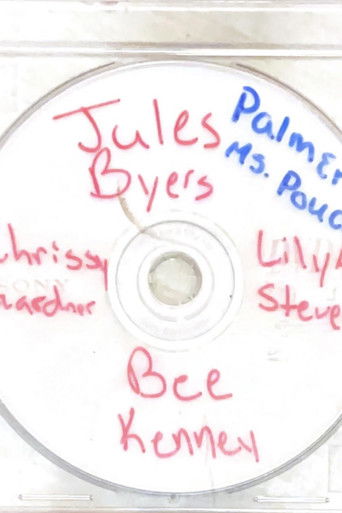 Jules
Byers
Palmer
Ms. Pouc
Chrissy
Gardner
SONY
Lily
Steve
Bee
Kenney